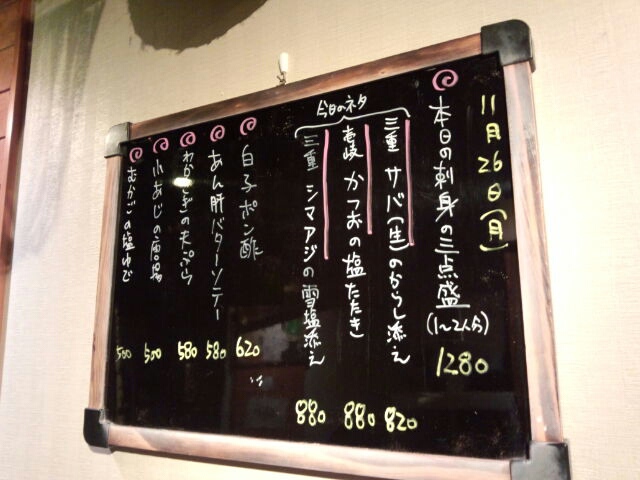 11月26日(月)
本日の刺身の三点盛
(1〜2人分)
1280
今日のネタ
三重 サバ(生)のからし添え
820
壱岐 かつおの塩たたき
880
三重 シマアジの雪塩添え
880
白子ポン酢
620
あん肝バターソテー
580
わかさぎの天ぷら
580
小あじの唐揚
500
むかごの塩ゆで
500